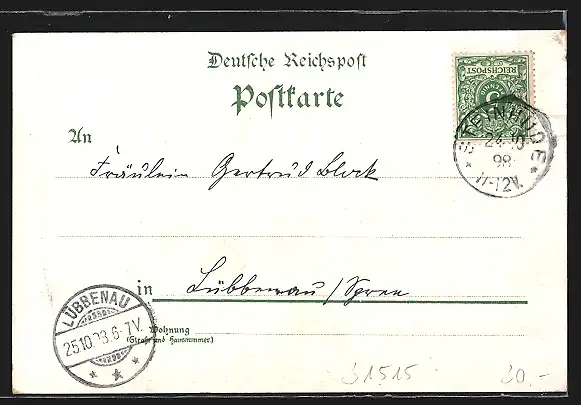 Deutsche Reichspost
Postkarte
REICHSPOST
5
An
STEINHUDE
24.10
98
* 11-12V. *
Fräulein Gertrud Block
in Lübbenau/Spree
LÜBBENAU
25.10.93.6-7V.
* * *
Wohnung
(Straße und Hausnummer)
31515
30.-